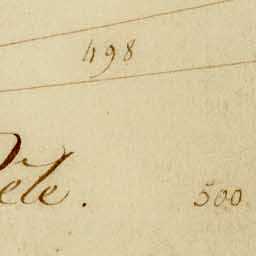 498
ele. 500